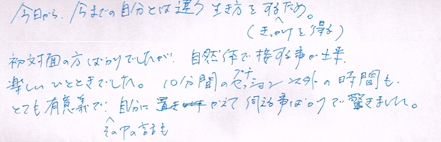 今日から、今までの自分とは違う生き方をするため。
(きっかけを得る)
初対面の方ばかりでしたが、自然体で接する事が出来、
楽しいひとときでした。10分間のプチセッション以外の時間も、
とても有意義で、自分に置きかえて伺える事ばかりで驚きました。
その中の話も